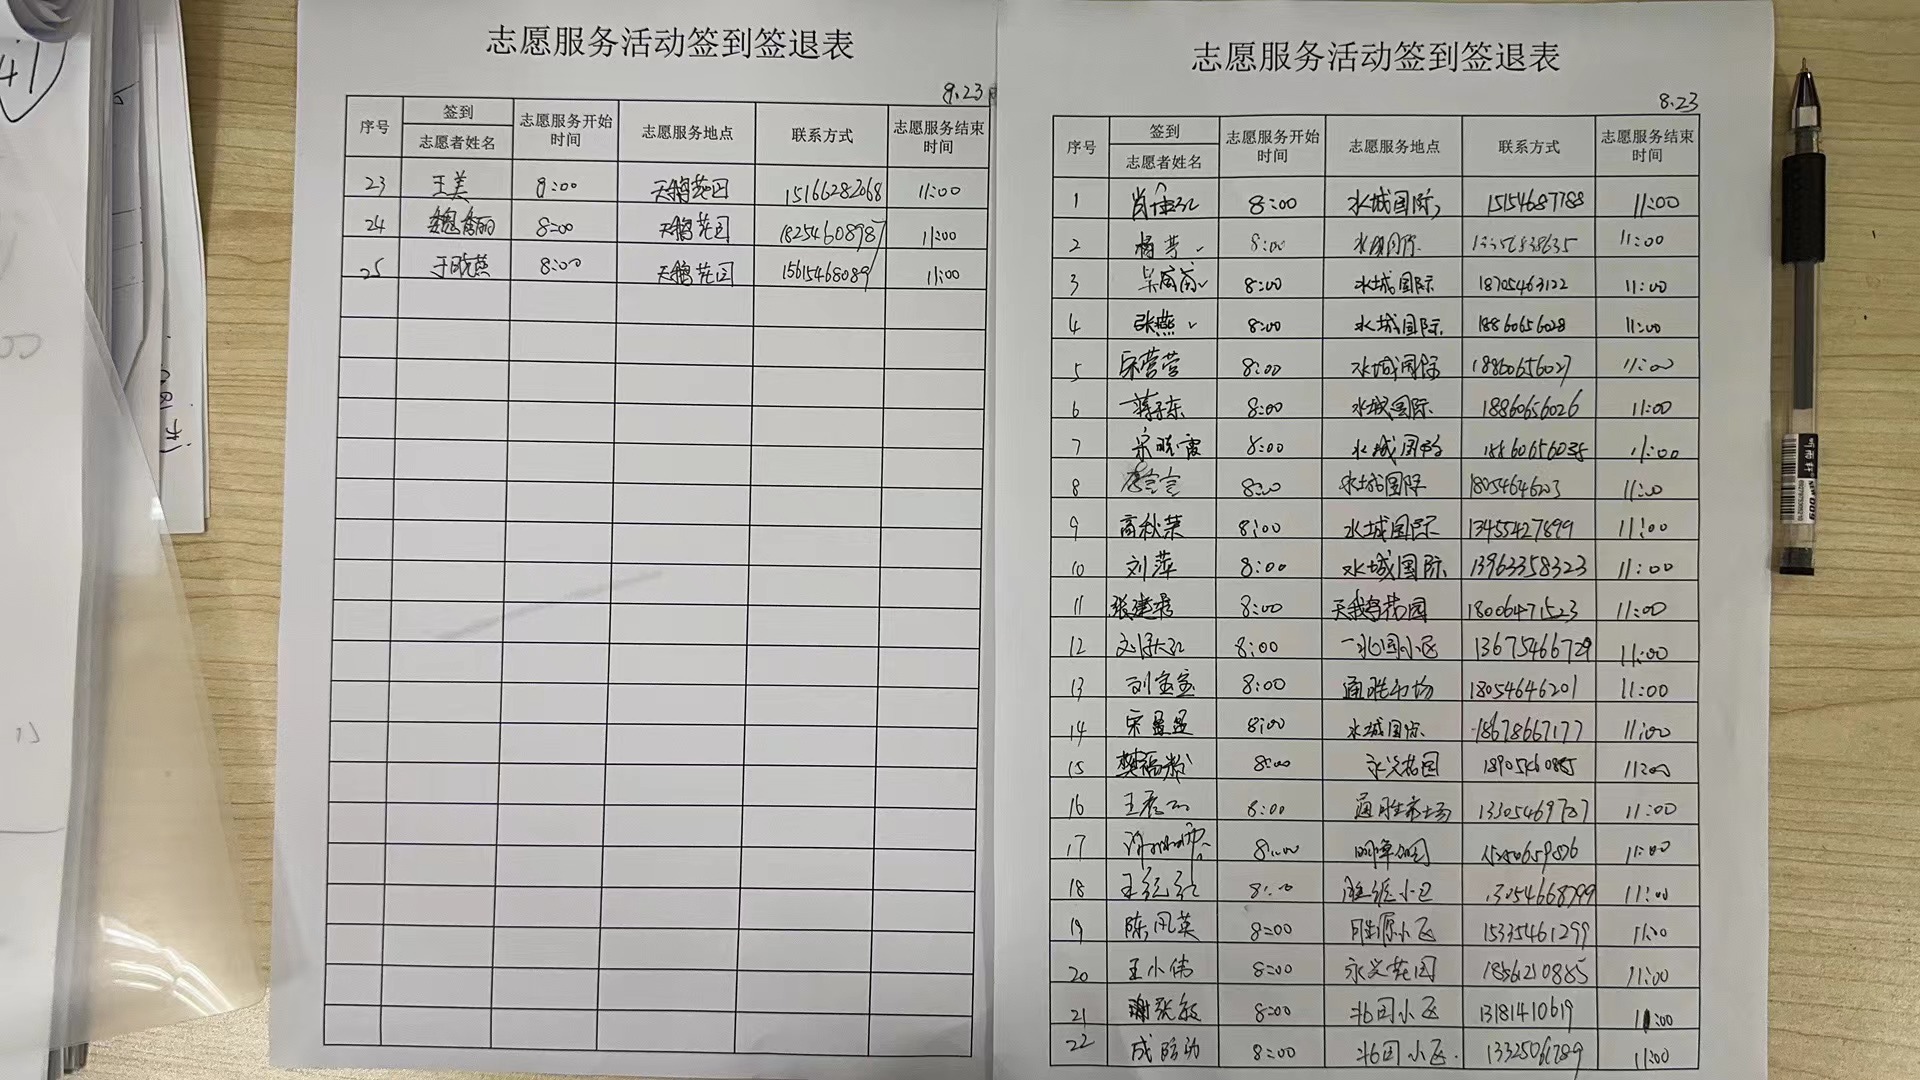 志愿服务活动签到签退表
8.23
序号 签到 志愿者姓名 志愿服务开始时间 志愿服务地点 联系方式 志愿服务结束时间
23 王美 8:00 天鹅花园 15166282068 11:00
24 魏秀丽 8:00 天鹅花园 18254608987 11:00
25 于晓燕 8:00 天鹅花园 15615468089 11:00
志愿服务活动签到签退表
8.23
序号 签到 志愿者姓名 志愿服务开始时间 志愿服务地点 联系方式 志愿服务结束时间
1 8:00 水城国际 15154687788 11:00
2 杨芳 8:00 水城国际 11:00
3 8:00 水城国际 18705463122 11:00
4 张燕 8:00 水城国际 18860656028 11:00
5 宋营营 8:00 水城国际 18860656027 11:00
6 8:00 水城国际 18860656026 11:00
7 宋晓霞 8:00 水城国际 18860656035 11:00
8 8:00 水城国际 18054646203 11:00
9 高秋荣 8:00 水城国际 13455427899 11:00
10 刘萍 8:00 水城国际 13963358323 11:00
11 张建秀 8:00 天鹅花园 18006471523 11:00
12 8:00 北国小区 13675466729 11:00
13 刘宝宝 8:00 通胜市场 18054646201 11:00
14 宋显显 8:00 水城国际 18678667177 11:00
15 樊福彩 8:00 永兴花园 18905460885 11:00
16 8:00 通胜市场 13305469707 11:00
17 8:00 11:00
18 王红红 8:00 小区 13054668799 11:00
19 陈凤英 8:00 胜源小区 15335461299 11:00
20 王小伟 8:00 永兴花园 18561210885 11:00
21 8:00 北国小区 13181410619 11:00
22 8:00 北国小区 11:00